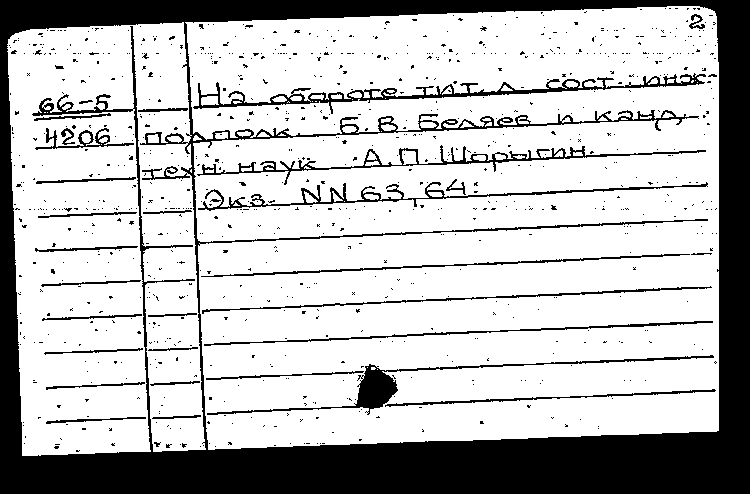 2
66-5 На обороте тит. л. сост.: инж.-
4206 подполк. Б.В. Беляев и канд.
техн. наук А.П. Шорыгин.
Экз. NN 63, 64: